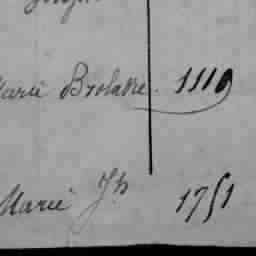 Marie Brolatre. 1119
Marie Jh 1751